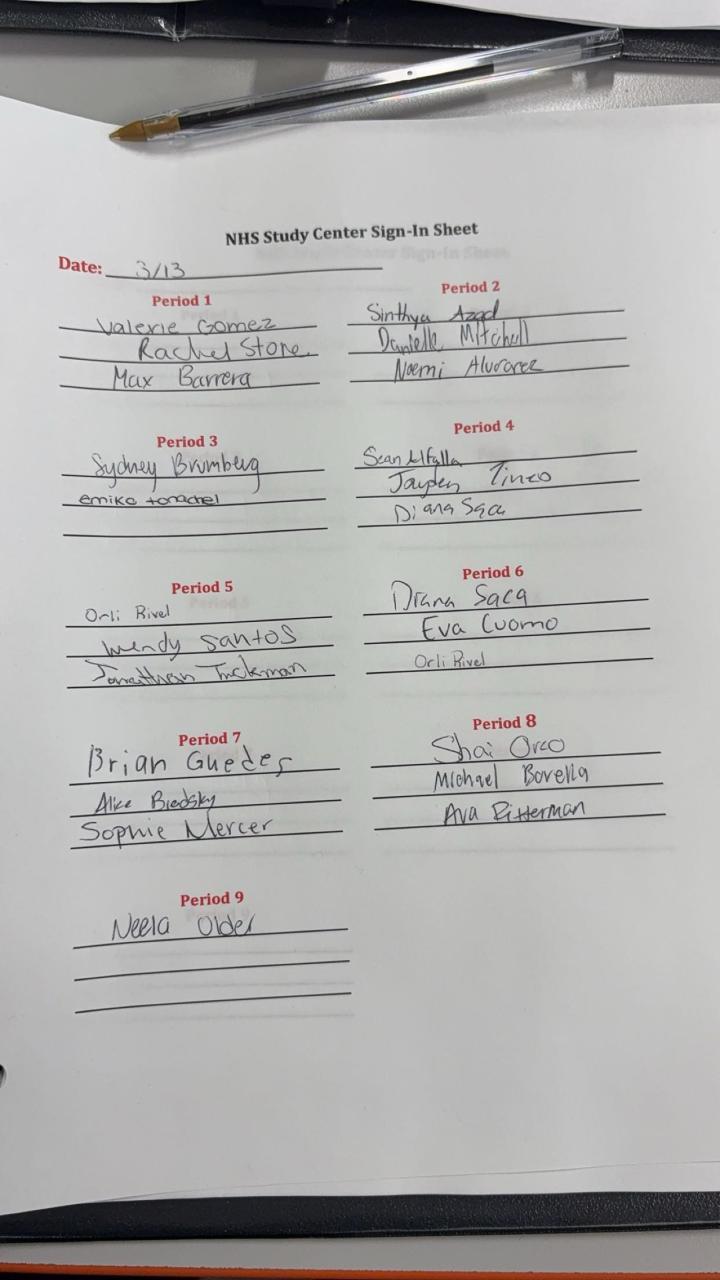 NHS Study Center Sign-In Sheet
Date: 3/13
Period 1
Valerie Gomez
Rachel Stone
Max Barrera
Period 2
Sinthya Azad
Danielle Mitchell
Noemi Alvarez
Period 3
Sydney Brumberg
emiko
Period 4
Sean
Jayden Tineo
Diana Saca
Period 5
Orli Rivel
Wendy Santos
Jonathan Tuckman
Period 6
Diana Saca
Eva Cuomo
Orli Rivel
Period 7
Brian Guedes
Alice
Sophie Mercer
Period 8
Shai Orco
Michael Bovella
Ava Ritterman
Period 9
Neela Older